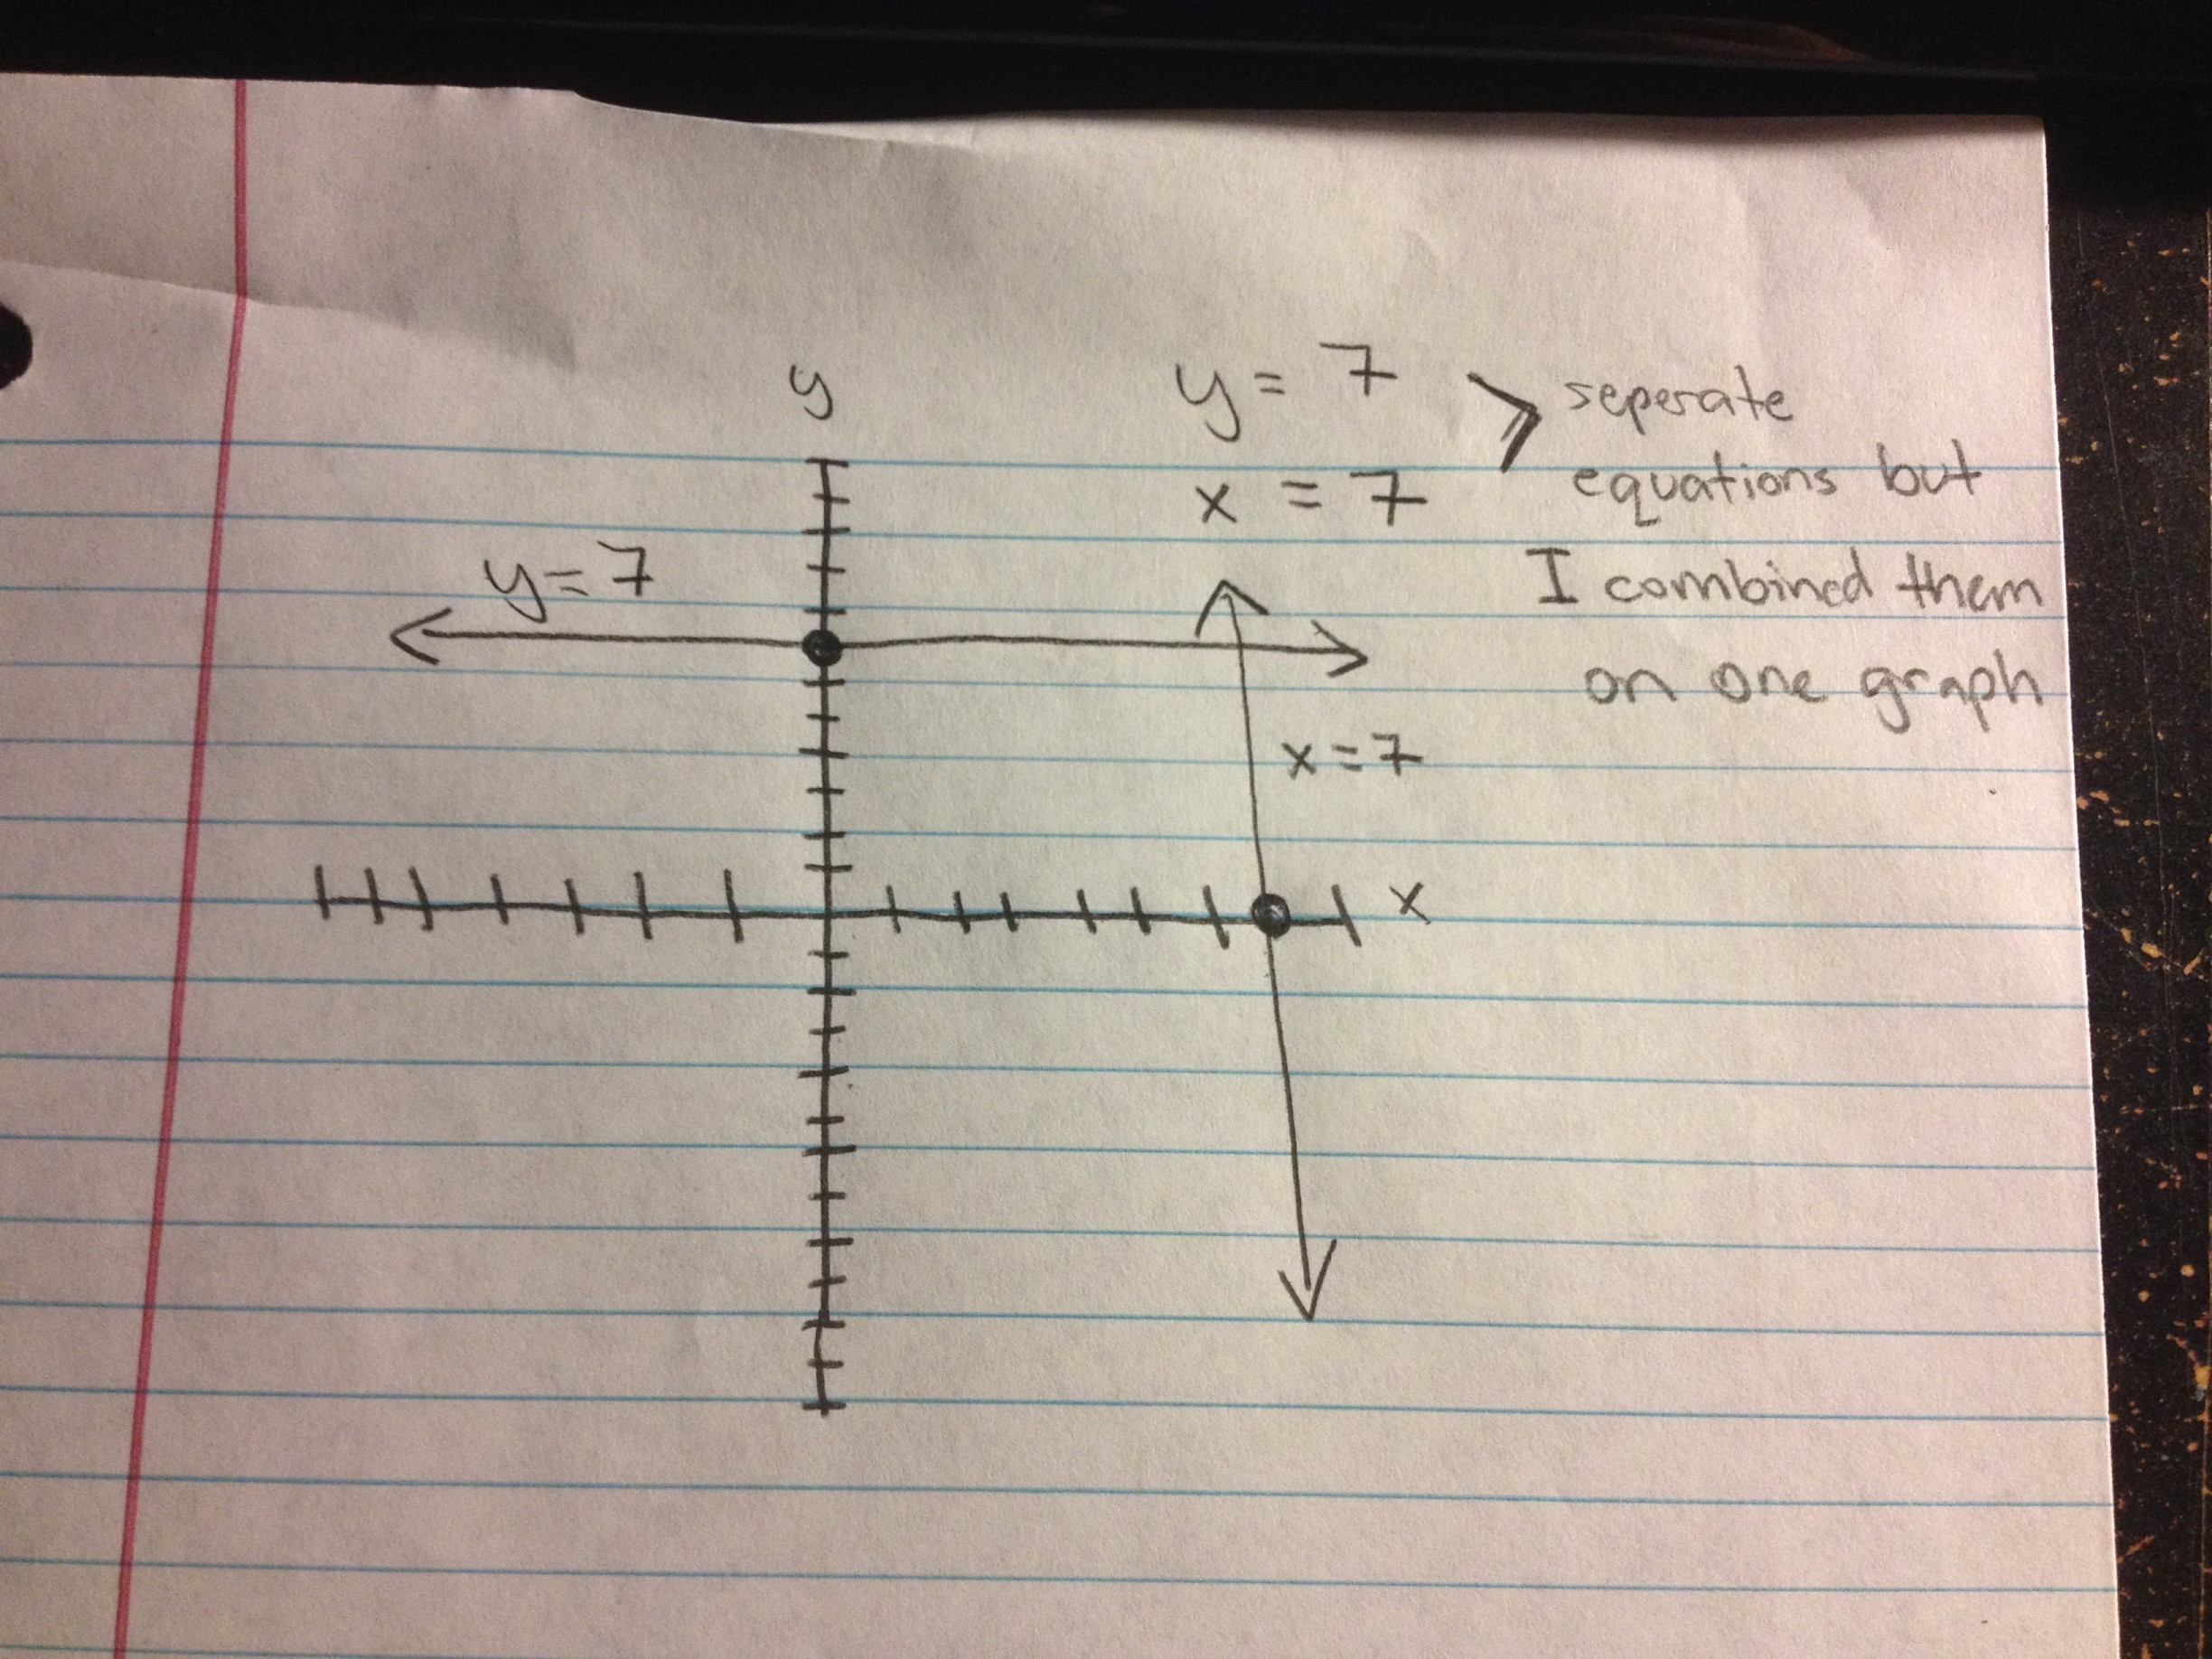 y
y = 7
seperate
x = 7
equations but
y = 7
I combined them
on one graph
x = 7
x